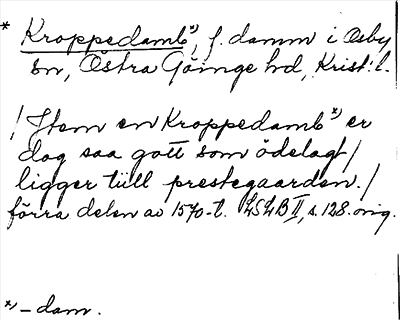 * Kroppedamb *), f. damm i Osby
sn, Östra Göinge hd, Krist: l.
/ Item en Kroppedamb *) er
dog saa gott som ödelagt /
ligger tiill prestegaarden. /
förra delen av 1570-t. LSLB II, s. 128. orig.
*) – dam.